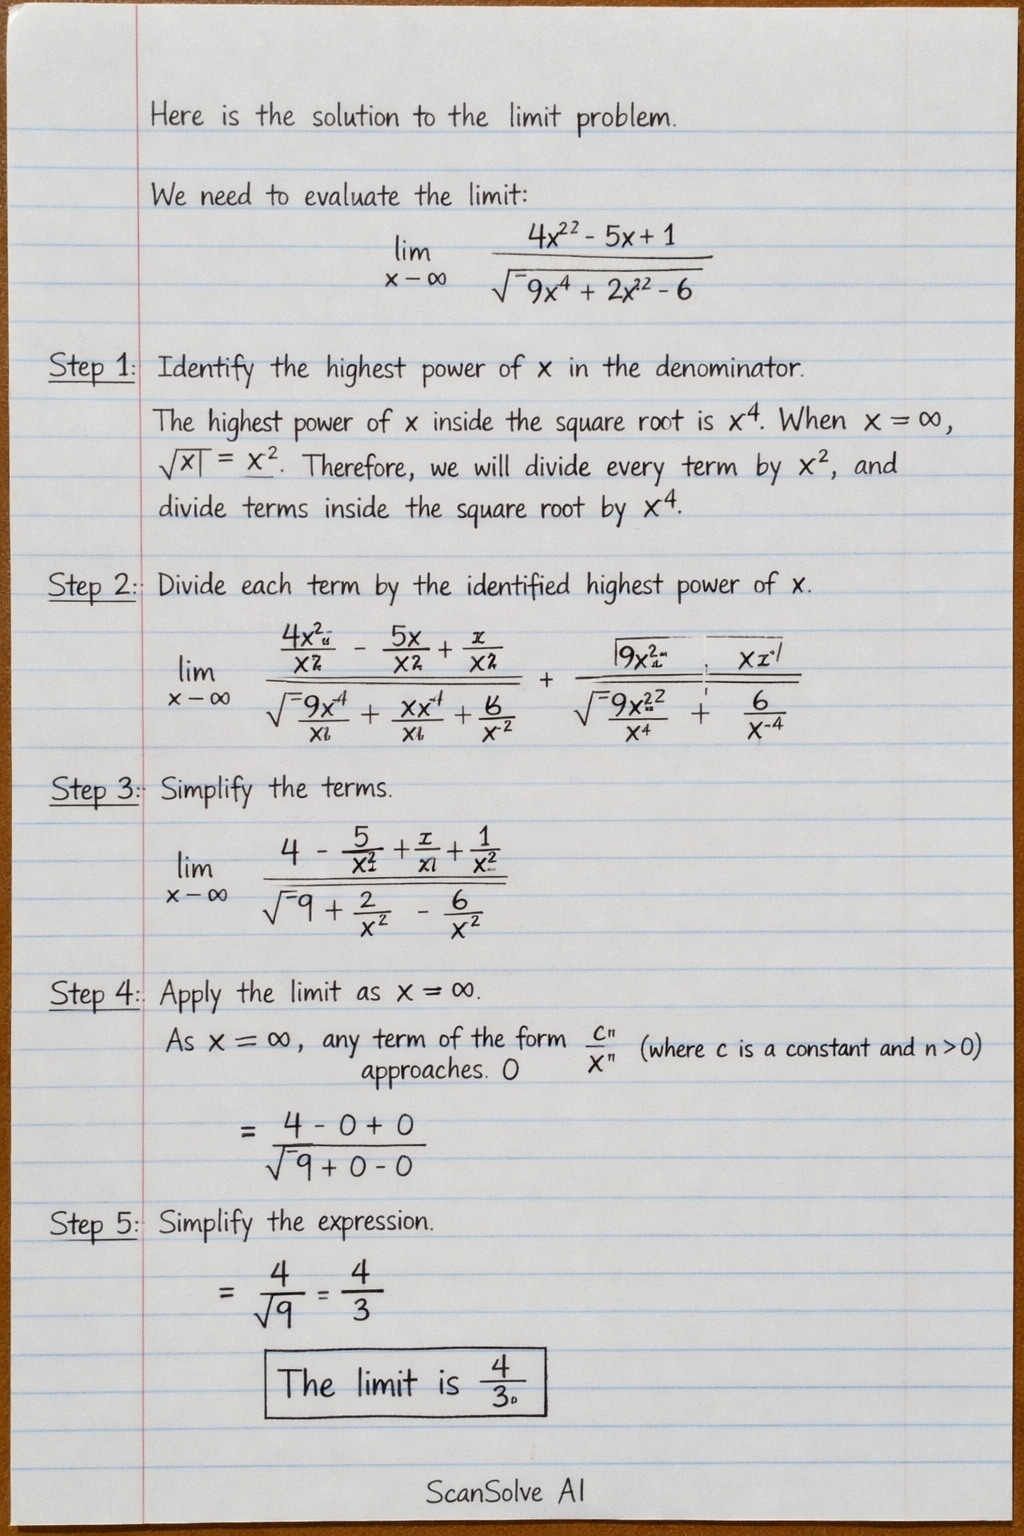 Here is the solution to the limit problem.
We need to evaluate the limit:
lim x – ∞ (4x²² - 5x + 1) / (√‾9x⁴ + 2x²² - 6)
Step 1: Identify the highest power of x in the denominator.
The highest power of x inside the square root is x⁴. When x = ∞,
√x| = x². Therefore, we will divide every term by x², and
divide terms inside the square root by x⁴.
Step 2: Divide each term by the identified highest power of x.
lim x – ∞
Step 3: Simplify the terms.
lim x – ∞ (4 - 5/x² + + 1/x²) / (√‾9 + 2/x² - 6/x²)
Step 4: Apply the limit as x = ∞.
As x = ∞, any term of the form cⁿ/xⁿ (where c is a constant and n > 0)
approaches. 0
= (4 - 0 + 0) / (√‾9 + 0 - 0)
Step 5: Simplify the expression.
= 4/√9 = 4/3
The limit is 4/3.
ScanSolve AI